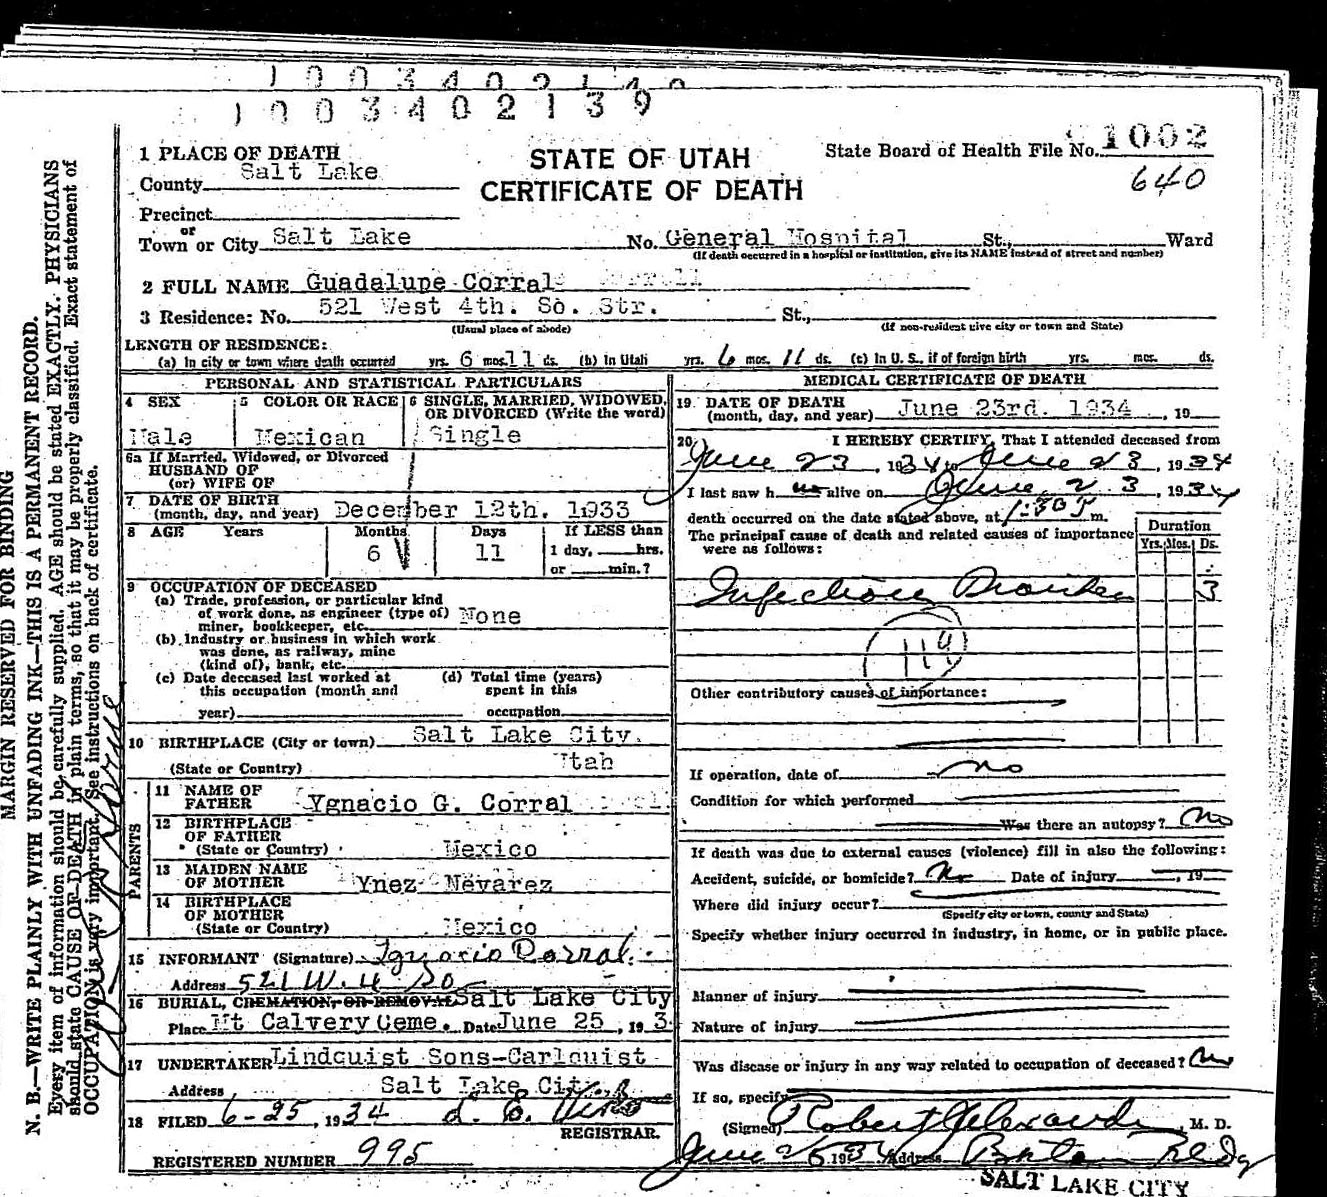 1003402139
STATE OF UTAH
CERTIFICATE OF DEATH
State Board of Health File No. 1002
640
1 PLACE OF DEATH
County Salt Lake
Precinct
or
Town or City Salt Lake No. General Hospital St., Ward
(If death occurred in a hospital or institution, give its NAME instead of street and number)
2 FULL NAME Guadalupe Corral
3 Residence: No. 521 West 4th. So. Str. St.,
(Usual place of abode) (If non-resident give city or town and State)
LENGTH OF RESIDENCE:
(a) In city or town where death occurred yrs. 6 mos. 11 ds. (b) In Utah yrs. 6 mos. 11 ds. (c) In U. S., if of foreign birth yrs. mos. ds.
PERSONAL AND STATISTICAL PARTICULARS
4 SEX
Male
5 COLOR OR RACE
Mexican
6 SINGLE, MARRIED, WIDOWED,
OR DIVORCED (Write the word)
Single
6a If Married, Widowed, or Divorced
HUSBAND OF
(or) WIFE OF
7 DATE OF BIRTH
(month, day, and year) December 12th. 1933
8 AGE Years Months Days If LESS than
6 11 1 day, hrs.
or min.?
9 OCCUPATION OF DECEASED
(a) Trade, profession, or particular kind
of work done, as engineer (type of)
miner, bookkeeper, etc. None
(b) Industry or business in which work
was done, as railway, mine
(kind of), bank, etc.
(c) Date deceased last worked at
this occupation (month and
year)
(d) Total time (years)
spent in this
occupation
10 BIRTHPLACE (City or town) Salt Lake City.
(State or Country) Utah
PARENTS
11 NAME OF
FATHER Ygnacio G. Corral
12 BIRTHPLACE
OF FATHER
(State or Country) Mexico
13 MAIDEN NAME
OF MOTHER Ynez Nevarez
14 BIRTHPLACE
OF MOTHER
(State or Country) Mexico
15 INFORMANT (Signature) Ignacio Corral
Address 521 W. 4 So
16 BURIAL, CREMATION, OR REMOVAL Salt Lake City
Place Mt Calvery Ceme. Date June 25, 193
17 UNDERTAKER Lindquist Sons-Carlquist
Address Salt Lake City,
18 FILED 6-25, 1934
REGISTRAR.
REGISTERED NUMBER 995
MEDICAL CERTIFICATE OF DEATH
19 DATE OF DEATH
(month, day, and year) June 23rd. 1934, 19
20 I HEREBY CERTIFY, That I attended deceased from
June 23, 1934, to June 23, 1934
I last saw h alive on June 23, 1934
death occurred on the date stated above, at 1:30 m.
The principal cause of death and related causes of importance
were as follows:
Duration
Yrs. Mos. Ds.
Infectious 3
Other contributory causes of importance:
If operation, date of no
Condition for which performed
Was there an autopsy? No
If death was due to external causes (violence) fill in also the following:
Accident, suicide, or homicide? No Date of injury, 19
Where did injury occur?
(Specify city or town, county and State)
Specify whether injury occurred in industry, in home, or in public place.
Manner of injury
Nature of injury
Was disease or injury in any way related to occupation of deceased? No
If so, specify
(Signed) Robert Alexander, M. D.
June 25 1934 Address Boston Bldg
SALT LAKE CITY
MARGIN RESERVED FOR BINDING
N. B.—WRITE PLAINLY WITH UNFADING INK—THIS IS A PERMANENT RECORD.
Every item of information should be carefully supplied. AGE should be stated EXACTLY. PHYSICIANS
should state CAUSE OF DEATH in plain terms, so that it may be properly classified. Exact statement of
OCCUPATION is very important. See instructions on back of certificate.